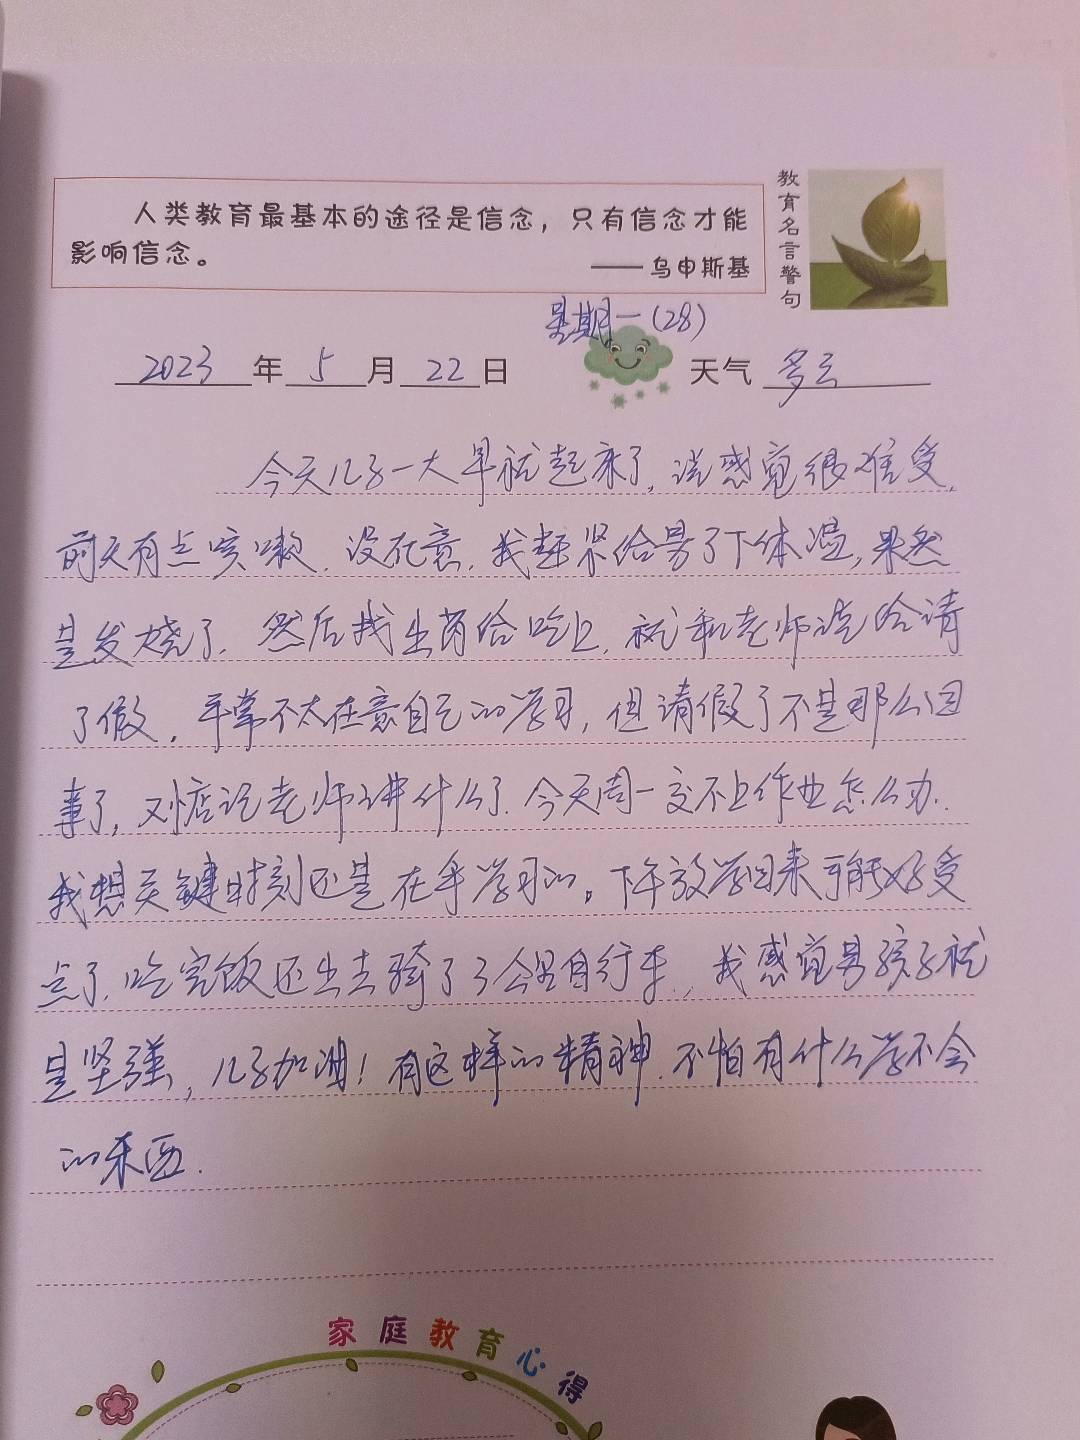 人类教育最基本的途径是信念，只有信念才能
影响信念。
——乌申斯基
教育名言警句
星期一(28)
2023年5月22日 天气 多云
今天儿子一大早就起床了,说感觉很难受,
前天有点咳嗽.没在意.我赶紧给量了下体温,果然
是发烧了.然后找出药给吃上.就和老师说给请
了假.平常不太在意自己的学习,但请假了不是那么回
事了,又惦记老师讲什么了.今天周一交不上作业怎么办.
我想关键时刻还是在乎学习的。下午放学回来可能好受
点了.吃完饭还出去骑了3公里自行车.,我感觉男孩子就
是坚强,儿子加油!有这样的精神.不怕有什么学不会
的东西.
家庭教育心得